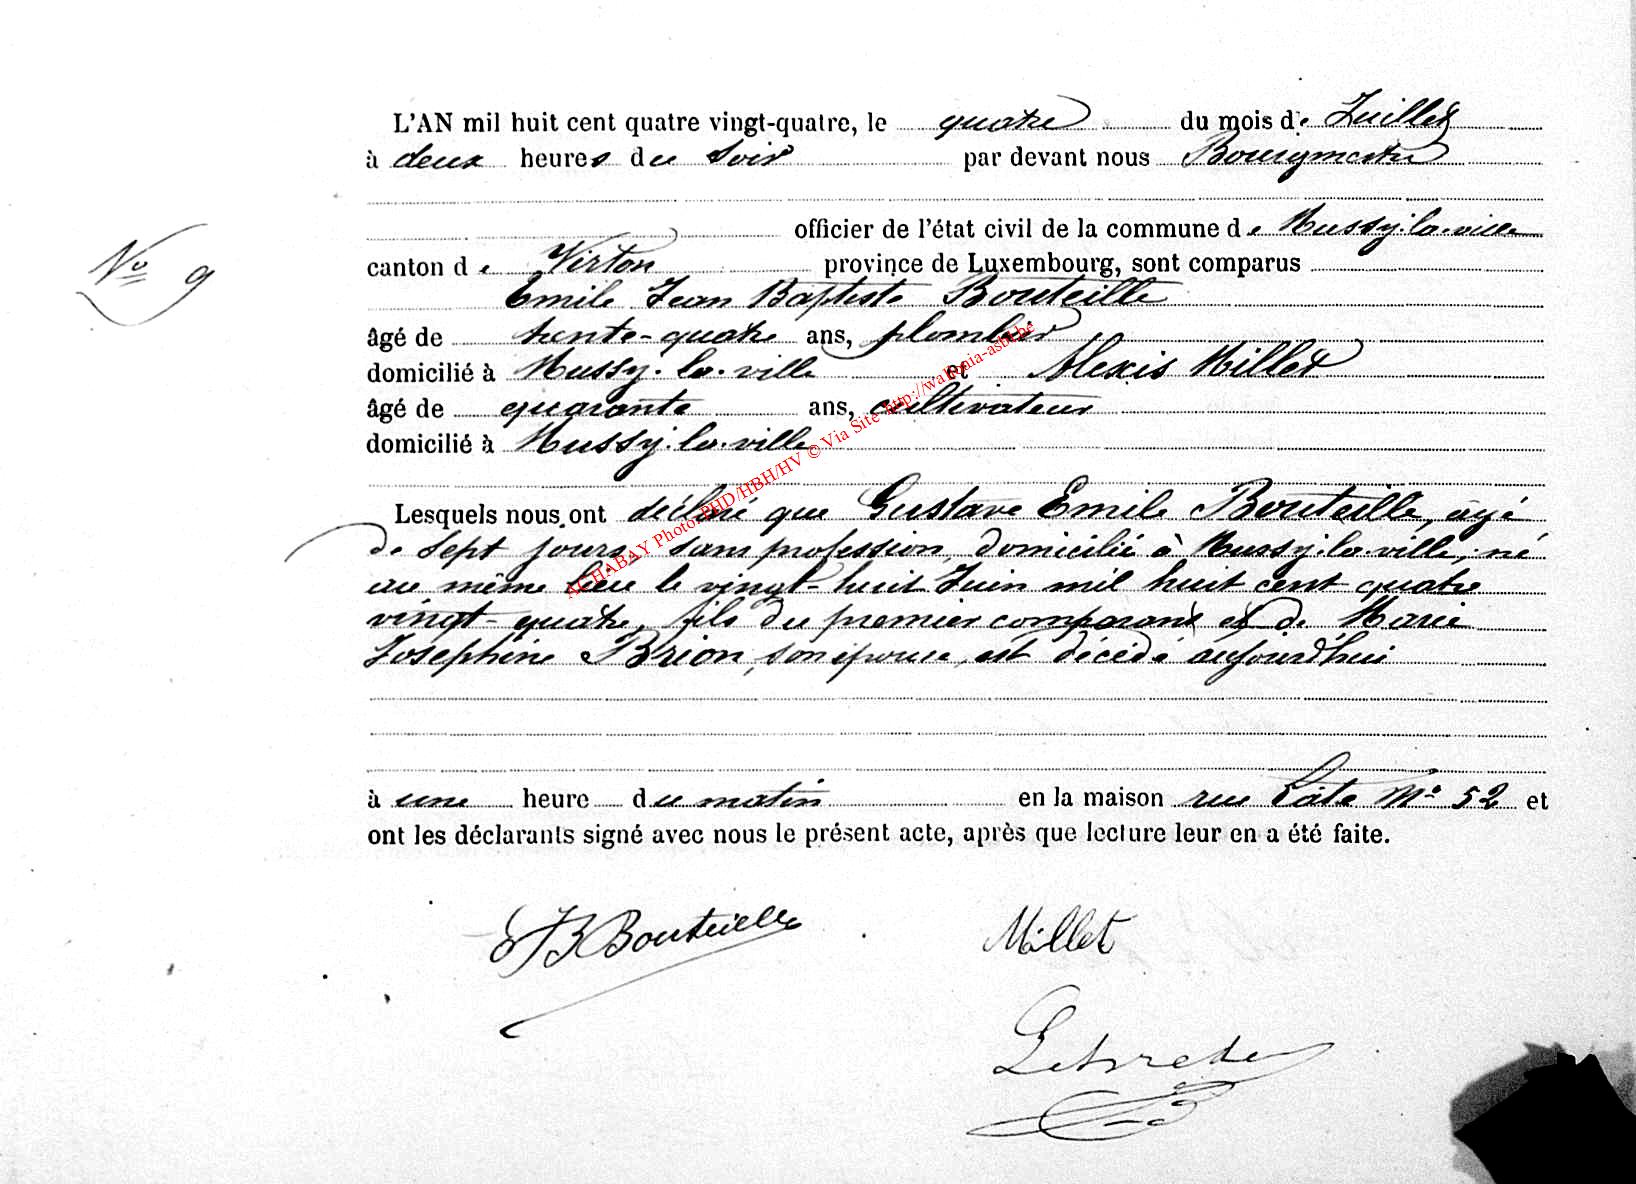 L'AN mil huit cent quatre vingt-quatre, le quatre du mois de Juillet
à deux heures du soir par devant nous Bourgmestre
officier de l'état civil de la commune de Mussy-la-ville
No 9
canton de Virton province de Luxembourg, sont comparus
Emile Jean Baptiste Bouteille
âgé de trente-quatre ans, plombier
domicilié à Mussy-la-ville et Alexis Millet
âgé de quarante ans, cultivateur
domicilié à Mussy-la-ville
Lesquels nous ont déclaré que Gustave Emile Bouteille, âgé
de sept jours, sans profession, domicilié à Mussy-la-ville, né
au même lieu le vingt-huit Juin mil huit cent quatre
vingt-quatre, fils du premier comparant et de Marie
Josephine Brion, son épouse, est décédé aujourd'hui
à une heure du matin en la maison rue No 52 et
ont les déclarants signé avec nous le présent acte, après que lecture leur en a été faite.
Bouteille Millet
PHD/HBH/HV © Via Site http://wallonia-asbl.be